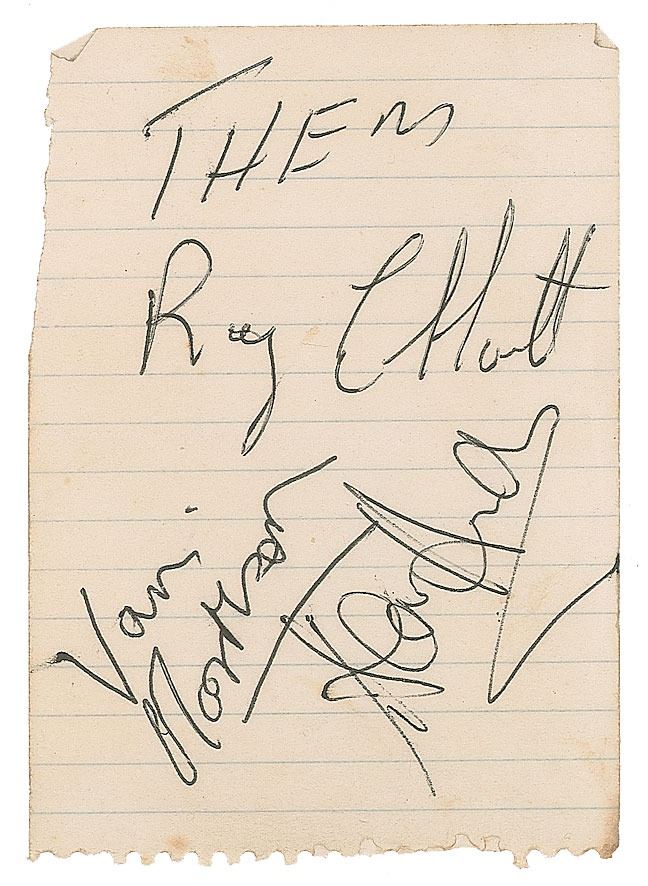 THEM
Ray Elliott
Van
Morrison